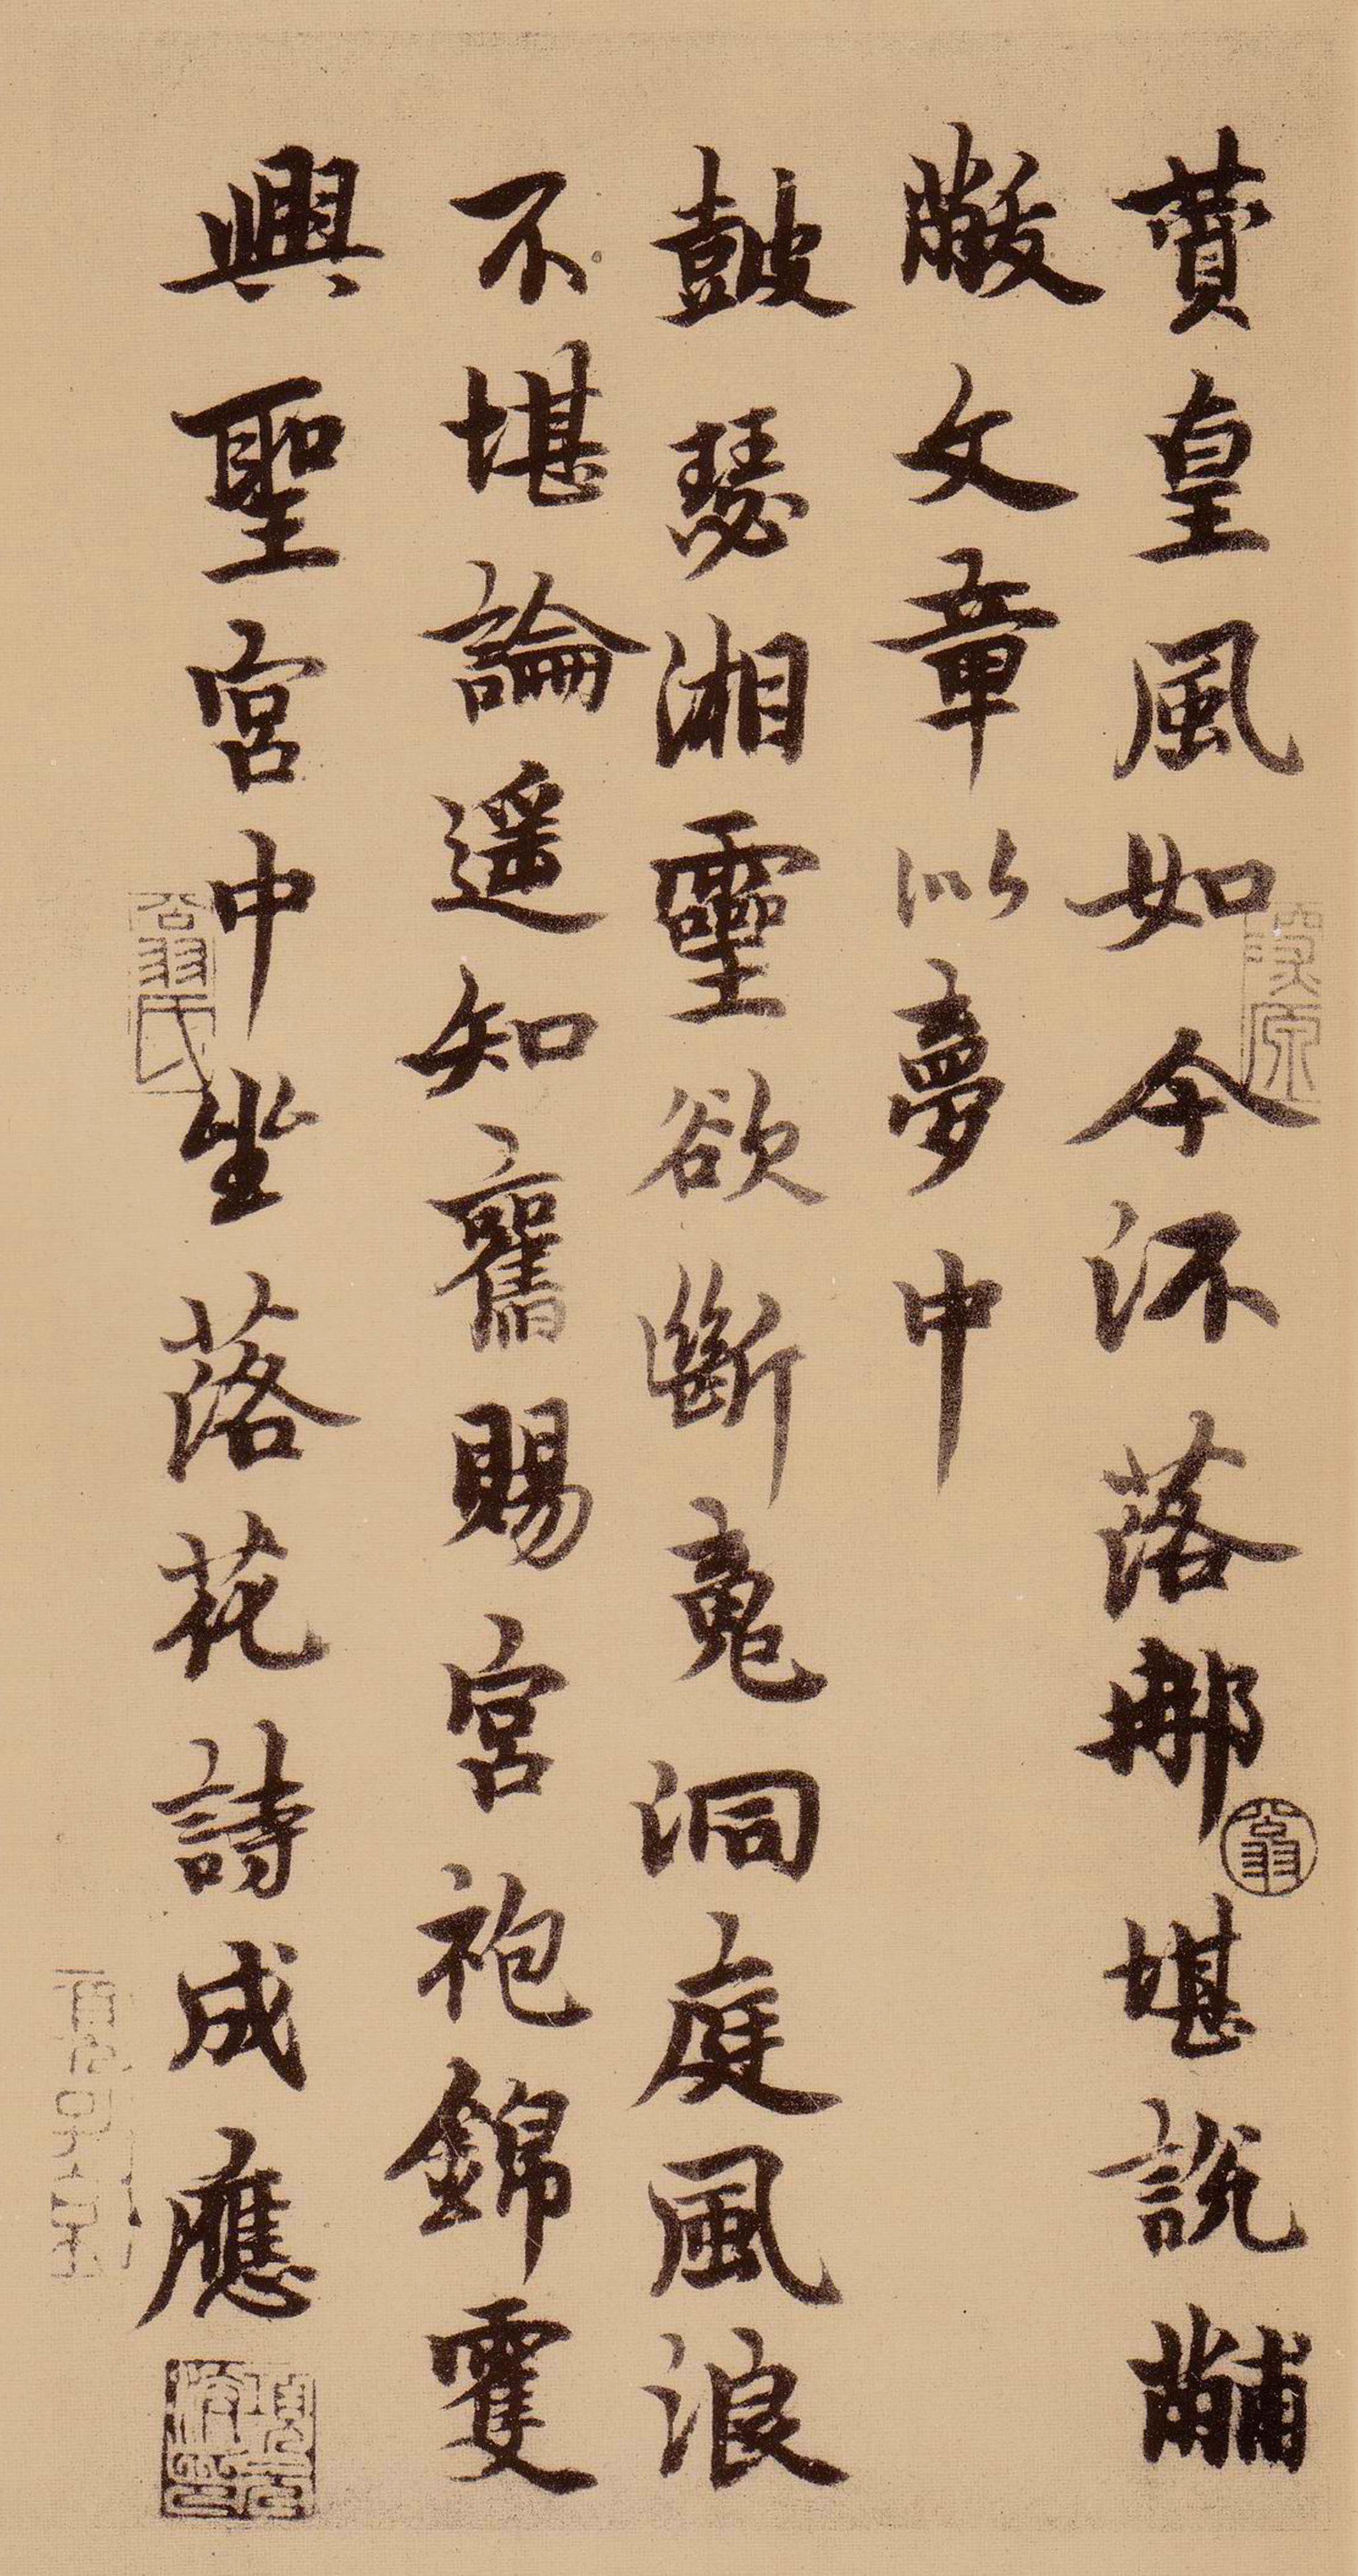 賛皇風如今流落那堪說黼
黻文章似夢中
皷瑟湘靈欲斷䰟洞庭風浪
不堪論遥知舊賜宮袍錦䨇
興聖宮中坐落花詩成應
翁氏
翁